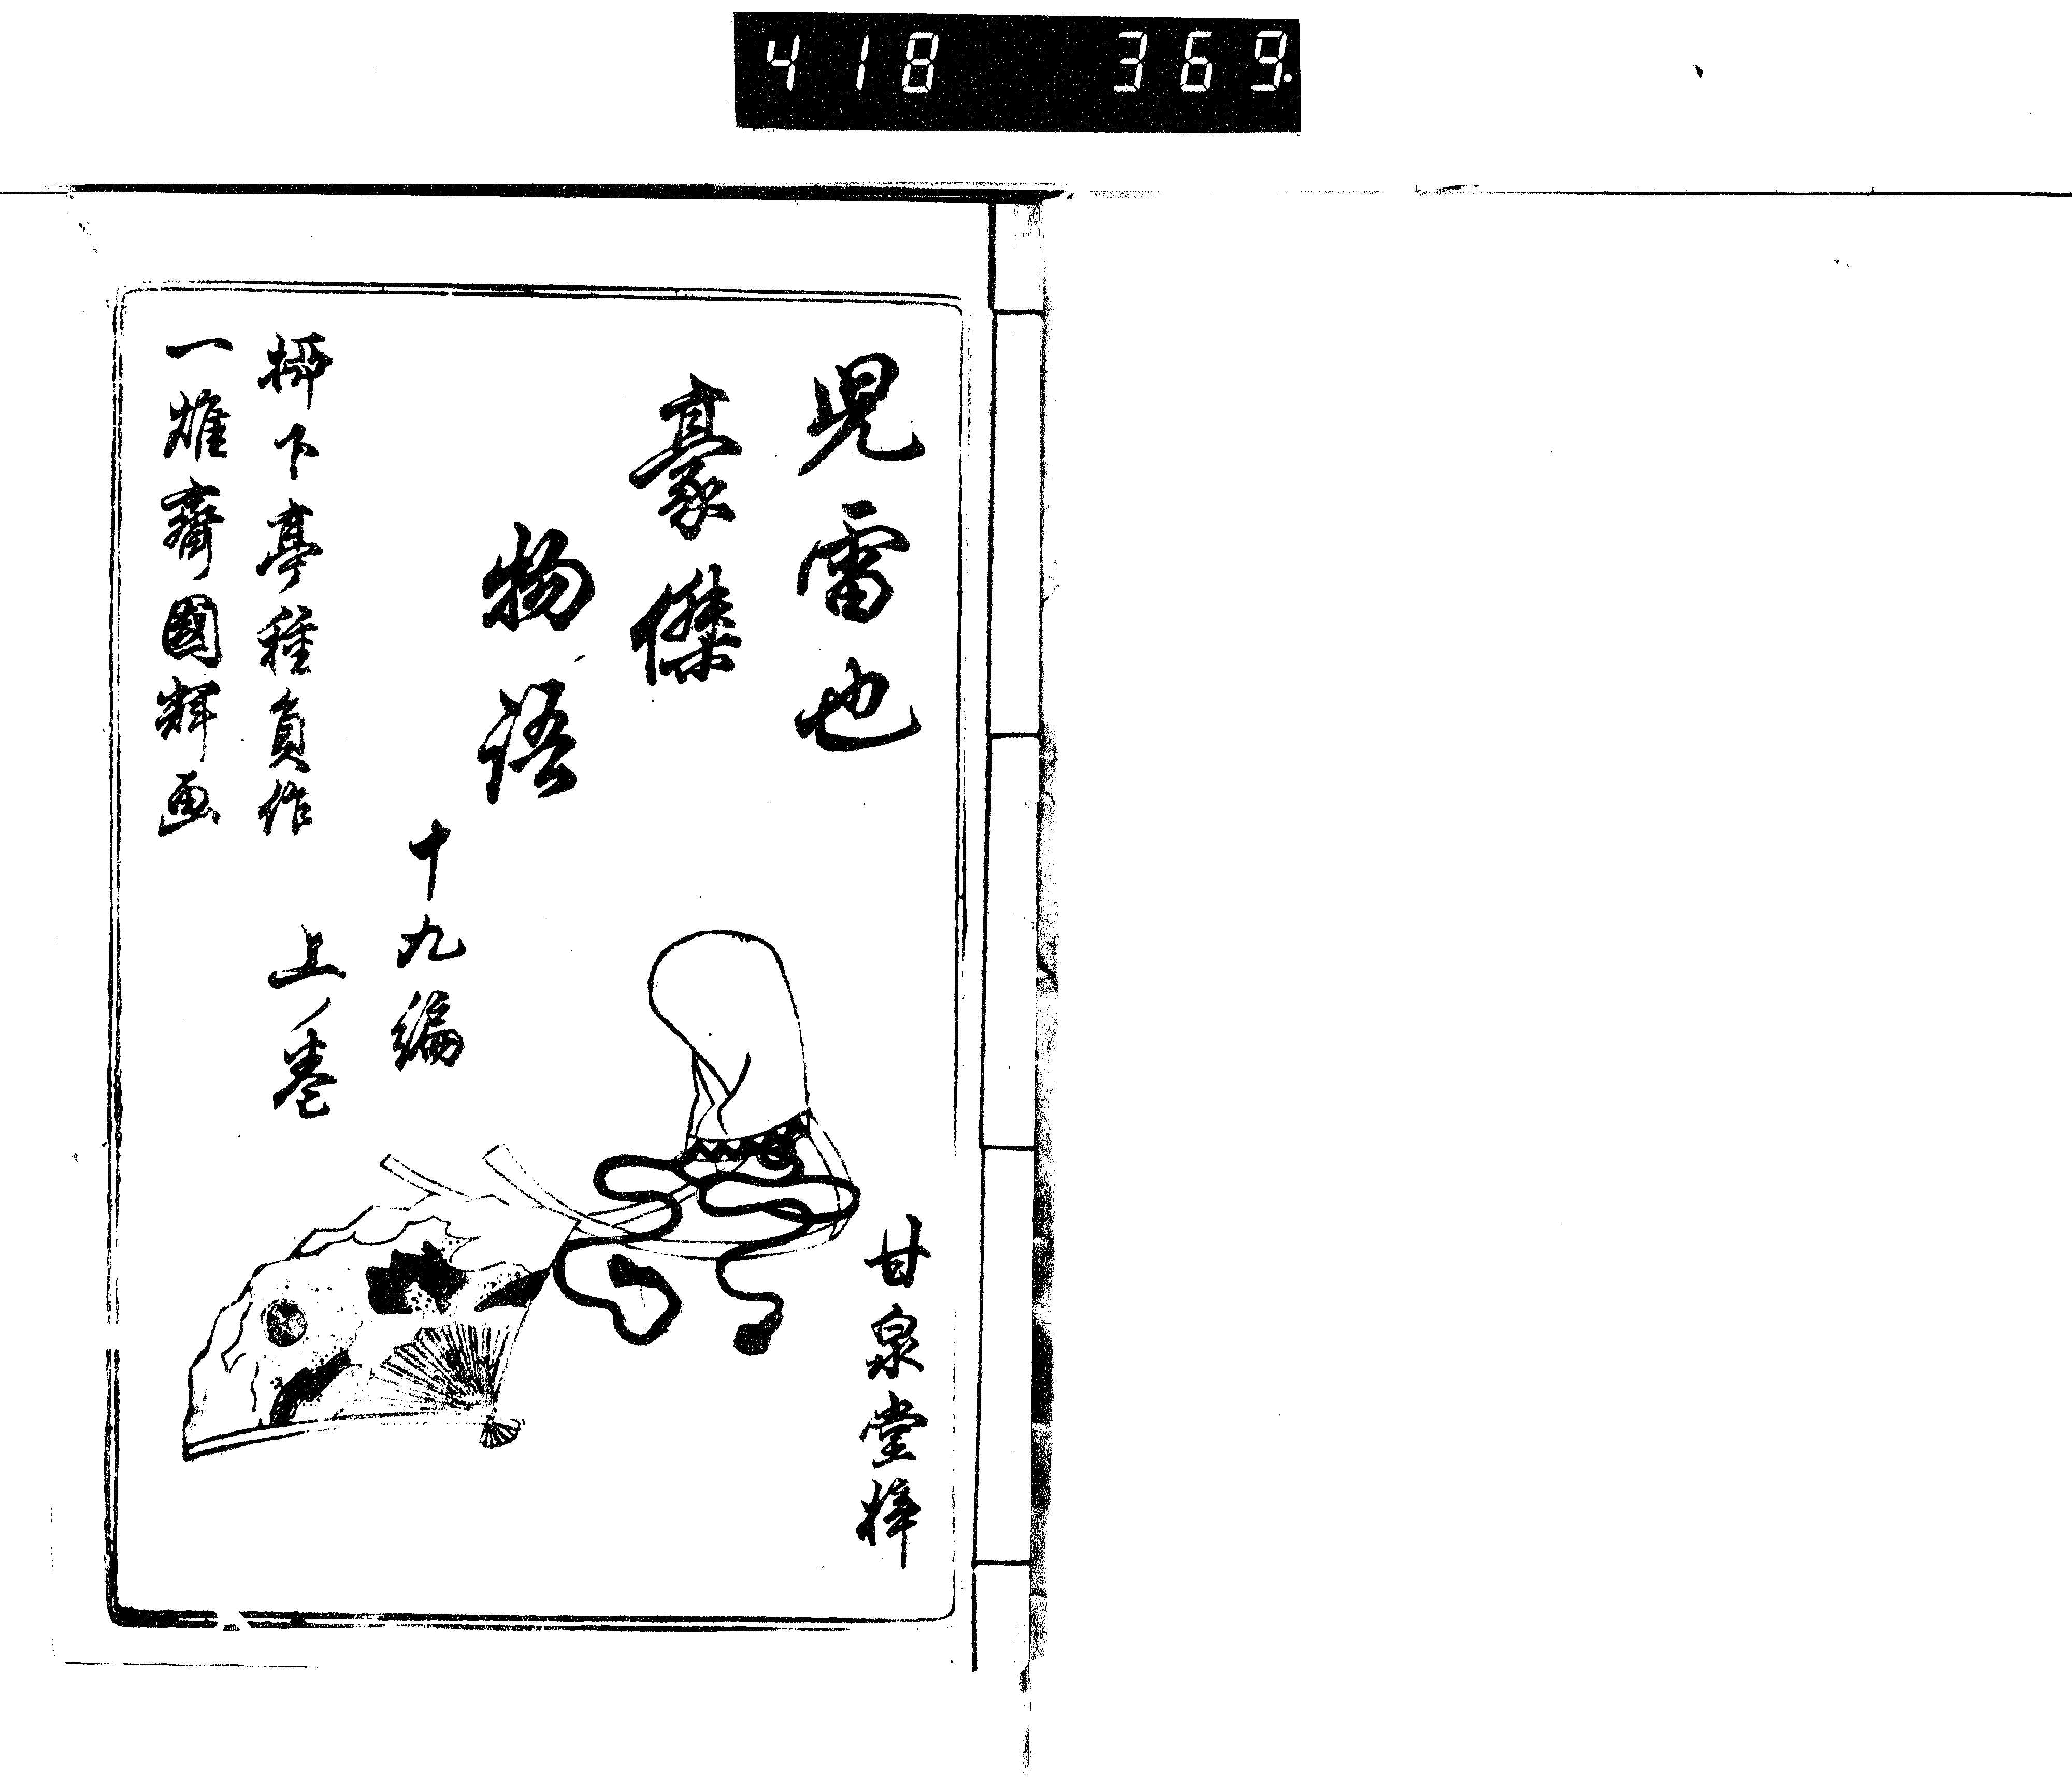 418 369.
児雷也
豪傑
物語
十九編
上ノ巻
柳下亭種員作
一雄齋國輝画
甘泉堂梓